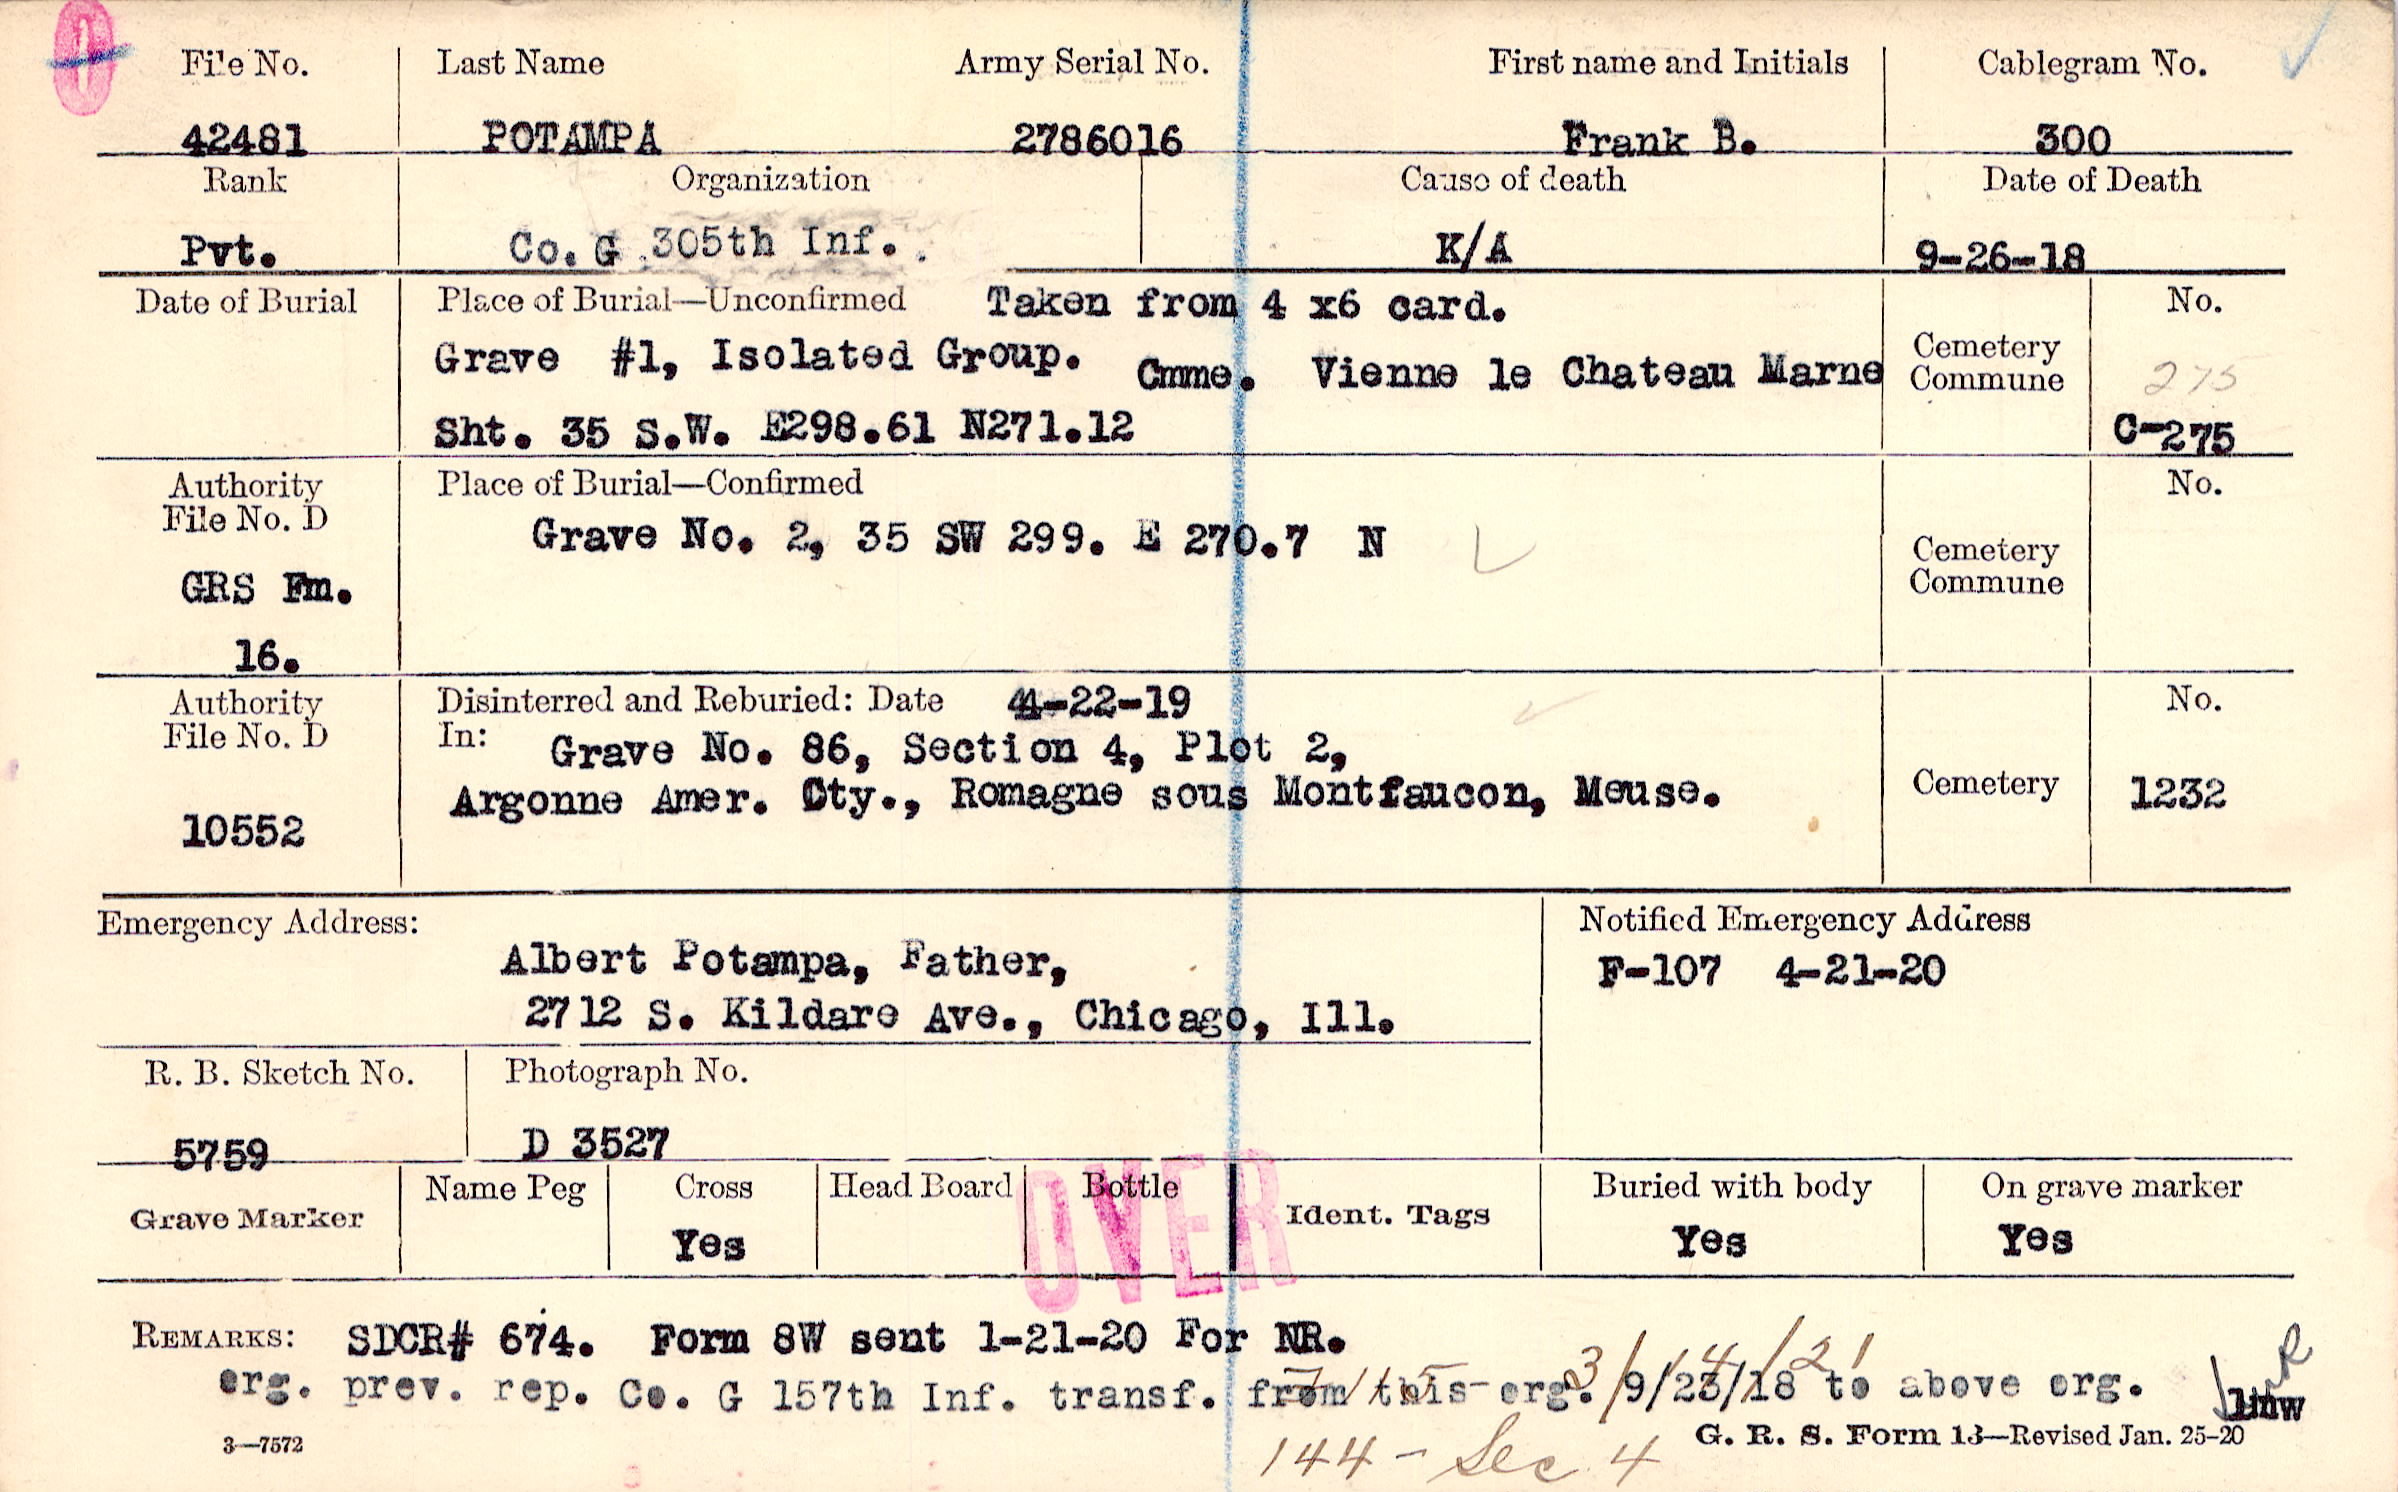 0
File No. Last Name Army Serial No. First name and Initials Cablegram No.
42481 POTAMPA 2786016 Frank B. 300
Rank Organization Cause of death Date of Death
Pvt. Co. G 305th Inf. K/A 9-26-18
Date of Burial Place of Burial—Unconfirmed Taken from 4 x6 card. No.
Grave #1, Isolated Group. Cmme. Vienne le Chateau Marne Cemetery Commune 275
Sht. 35 S.W. E298.61 N271.12 C-275
Authority File No. D Place of Burial—Confirmed No.
Grave No. 2, 35 SW 299. E 270.7 N
GRS Fm. Cemetery Commune
16.
Authority File No. D Disinterred and Reburied: Date 4-22-19 No.
In: Grave No. 86, Section 4, Plot 2,
Argonne Amer. Cty., Romagne sous Montfaucon, Meuse. Cemetery 1232
10552
Emergency Address: Notified Emergency Address
Albert Potampa, Father, F-107 4-21-20
2712 S. Kildare Ave., Chicago, Ill.
R. B. Sketch No. Photograph No.
5759 D 3527
OVER
Grave Marker Name Peg Cross Head Board Bottle Ident. Tags Buried with body On grave marker
Yes Yes Yes
REMARKS: SDCR# 674. Form 8W sent 1-21-20 For NR.
3/14/21
org. prev. rep. Co. G 157th Inf. transf. from this org. 9/23/18 to above org. lmw
3—7572 G. R. S. Form 13—Revised Jan. 25-20
144 - Sec. 4